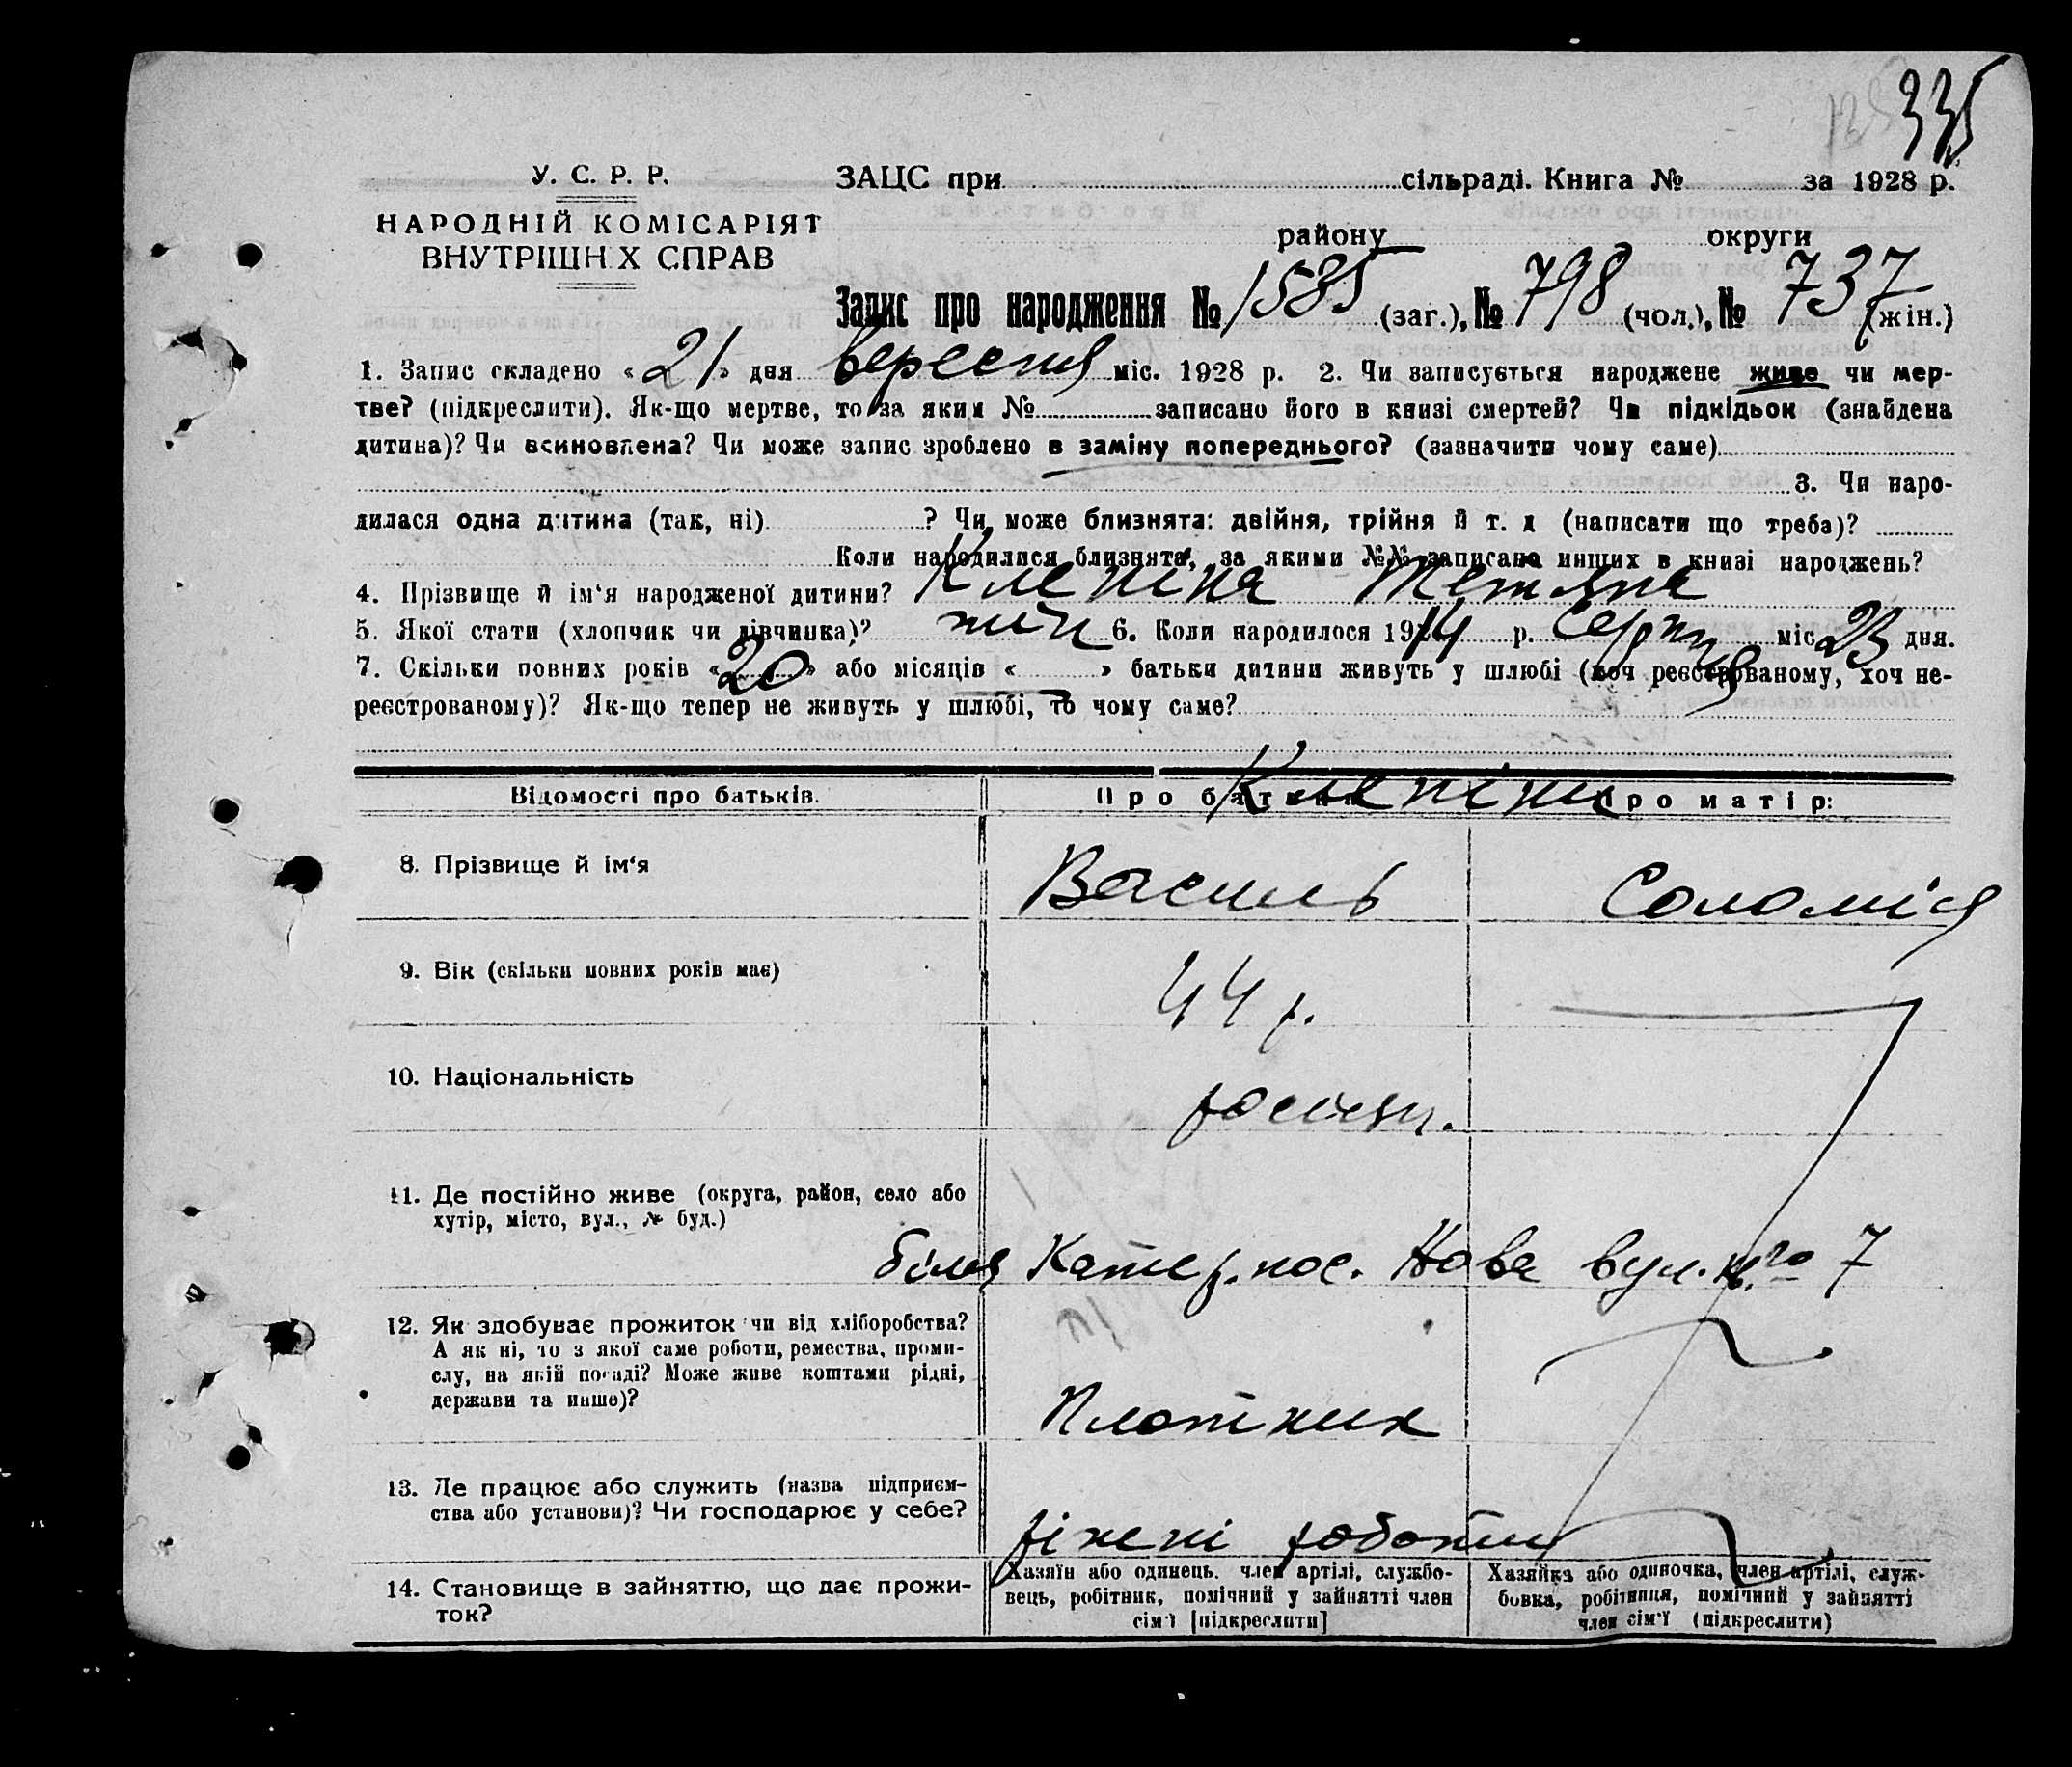 335
У. С. Р. Р.
НАРОДНІЙ КОМІСАРІЯТ
ВНУТРІШНІХ СПРАВ
ЗАЦС при сільраді. Книга № за 1928 р.
району округи
Запис про народження № 1535 (заг.), № 798 (чол.), № 737 (жін.)
1. Запис складено «21» дня вересня міс. 1928 р. 2. Чи записується народжене живе чи мер-
тве? (підкреслити). Як-що мертве, то за яким № записано його в книзі смертей? Чи підкідьок (знайдена
дитина)? Чи всиновлена? Чи може запис зроблено в заміну попереднього? (зазначити чому саме)
3. Чи наро-
дилася одна дитина (так, ні) ? Чи може близнята: двійня, трійня й т. д (написати що треба)?
Коли народилися близнята, за якими №№ записано инших в книзі народжень?
4. Прізвище й ім‘я народженої дитини? Клепіна Тетяна
5. Якої стати (хлопчик чи дівчинка)? жін 6. Коли народилося 1914 р. Серпня міс 23 дня.
7. Скільки повних років «20» або місяців « » батьки дитини живуть у шлюбі (хоч реєстрованому, хоч не-
реєстрованому)? Як-що тепер не живуть у шлюбі, то чому саме?
Відомості про батьків. Про батька Про матір:
Клепіни
8. Прізвище й ім‘я Василь Соломія
9. Вік (скільки повних років має) 44 р.
10. Національність росіян.
11. Де постійно живе (округа, район, село або
хутір, місто, вул., № буд.)
біля Катер. пос. Нова вул. 7
12. Як здобуває прожиток чи від хліборобства?
А як ні, то з якої саме роботи, ремества, проми-
слу, на якій посаді? Може живе коштами рідні,
держави та инше)?
Плотник
13. Де працює або служить (назва підприєм-
ства або установи)? Чи господарює у себе?
ріжені роботи
14. Становище в зайняттю, що дає прожи-
ток?
Хазяїн або одинець. член артілі, службо-
вець, робітник, помічний у зайнятті член
сім‘ї [підкреслити]
Хазяйка або одиночка, член артілі, служ-
бовка, робітниця, помічний у зайнятті
член сім‘ї (підкреслити)